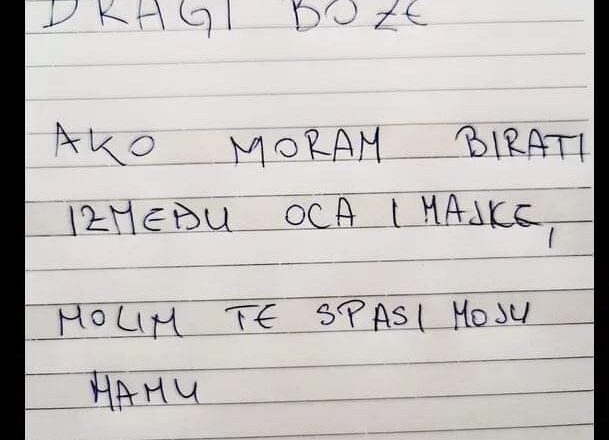 DRAGI BOŽE
AKO MORAM BIRATI
IZMEĐU OCA I MAJKE,
MOLIM TE SPASI MOJU
MAMU